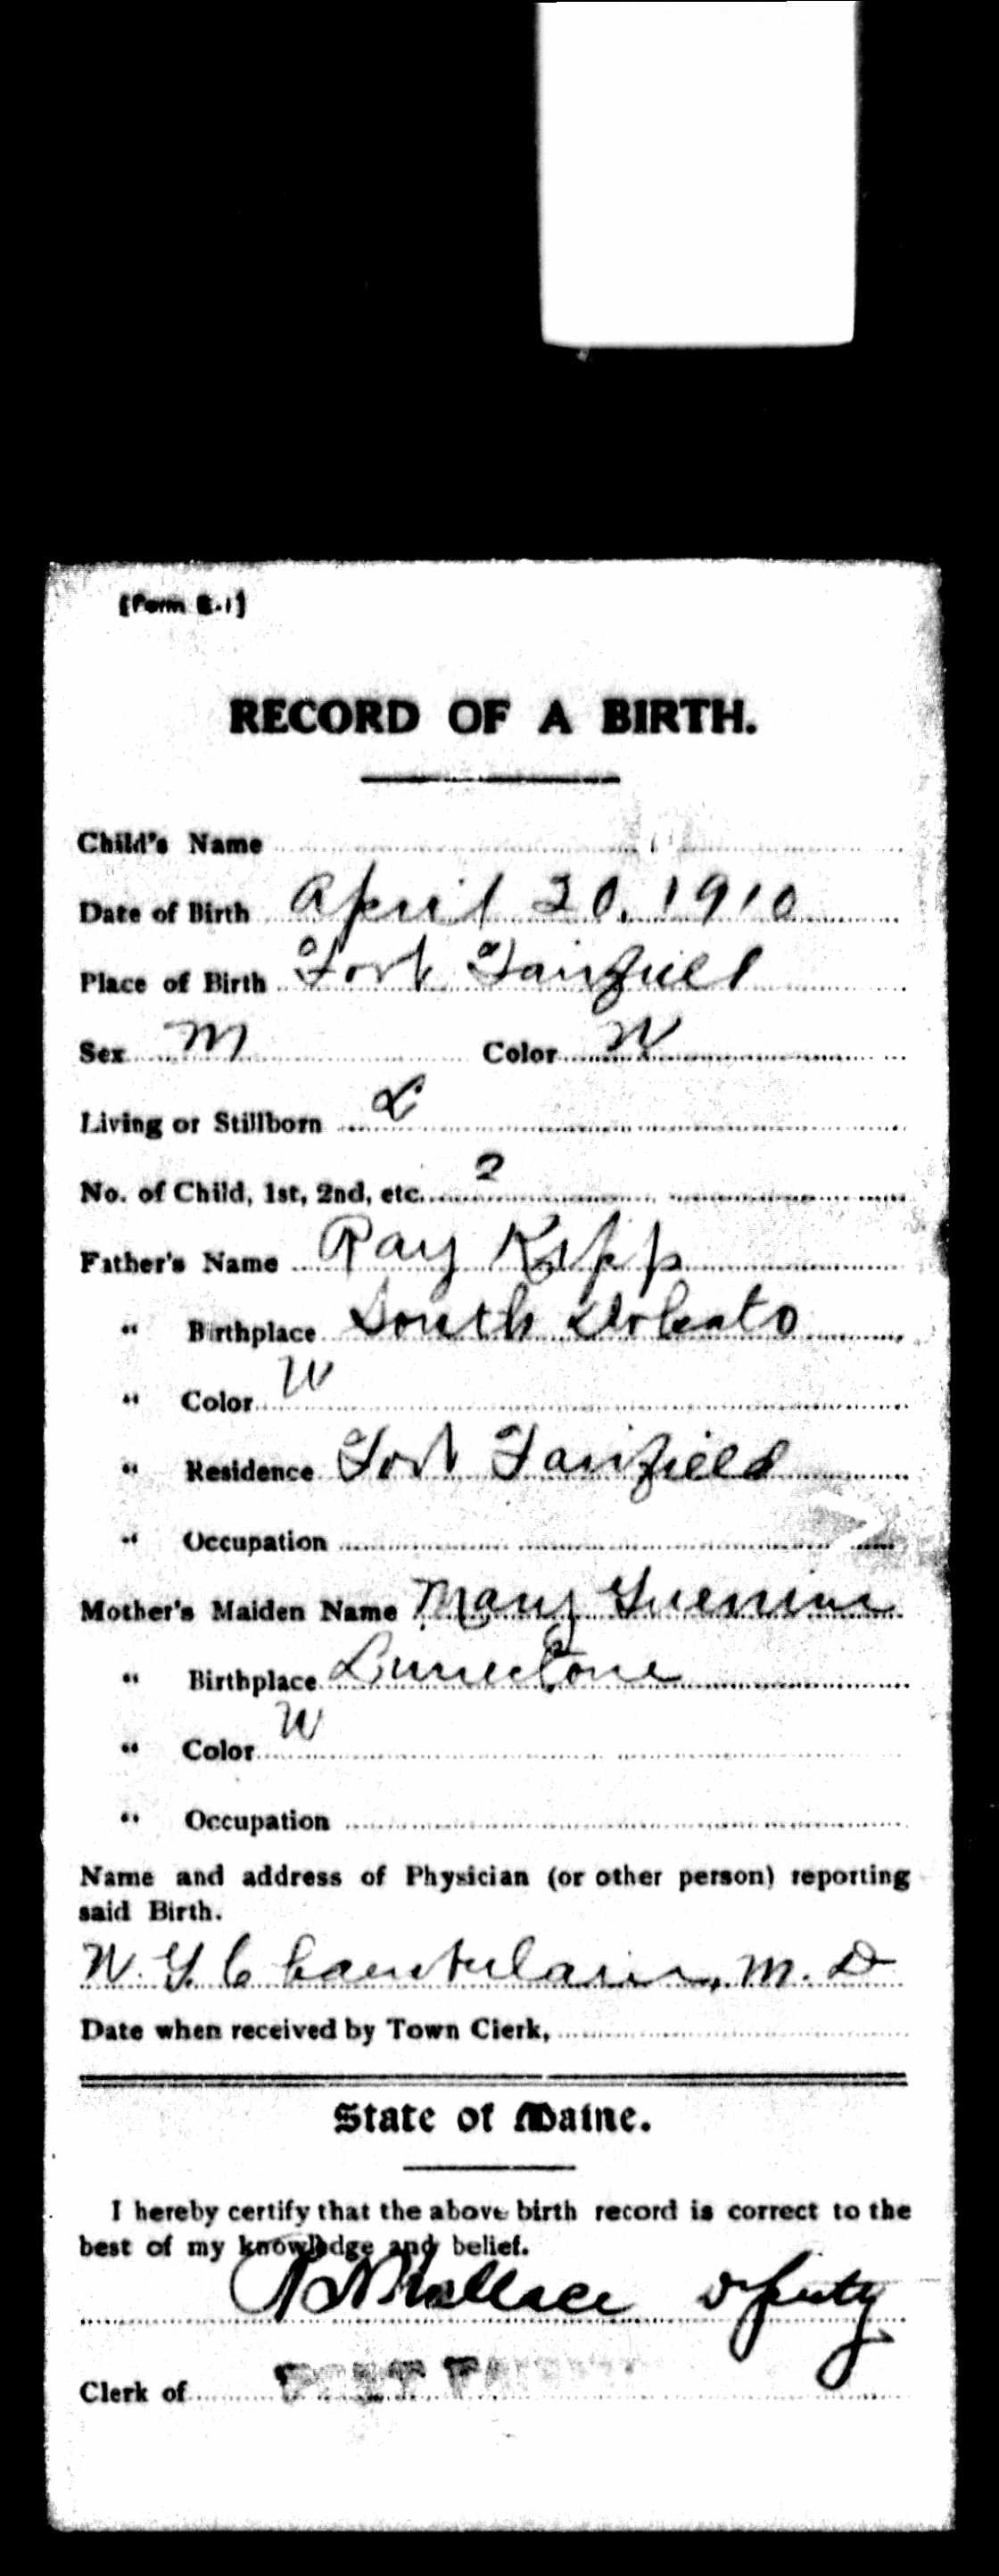 [Form E-1]
RECORD OF A BIRTH.
Child's Name
Date of Birth April 20, 1910
Place of Birth Fort Fairfield
Sex M Color W
Living or Stillborn L
No. of Child, 1st, 2nd, etc. 2
Father's Name Ray
" Birthplace South
" Color W
" Residence Fort Fairfield
" Occupation
Mother's Maiden Name Mary
" Birthplace Limestone
" Color W
" Occupation
Name and address of Physician (or other person) reporting
said Birth.
W. G. Chamberlain, M. D
Date when received by Town Clerk,
State of Maine.
I hereby certify that the above birth record is correct to the
best of my knowledge and belief.
Wallace Deputy
Clerk of FORT